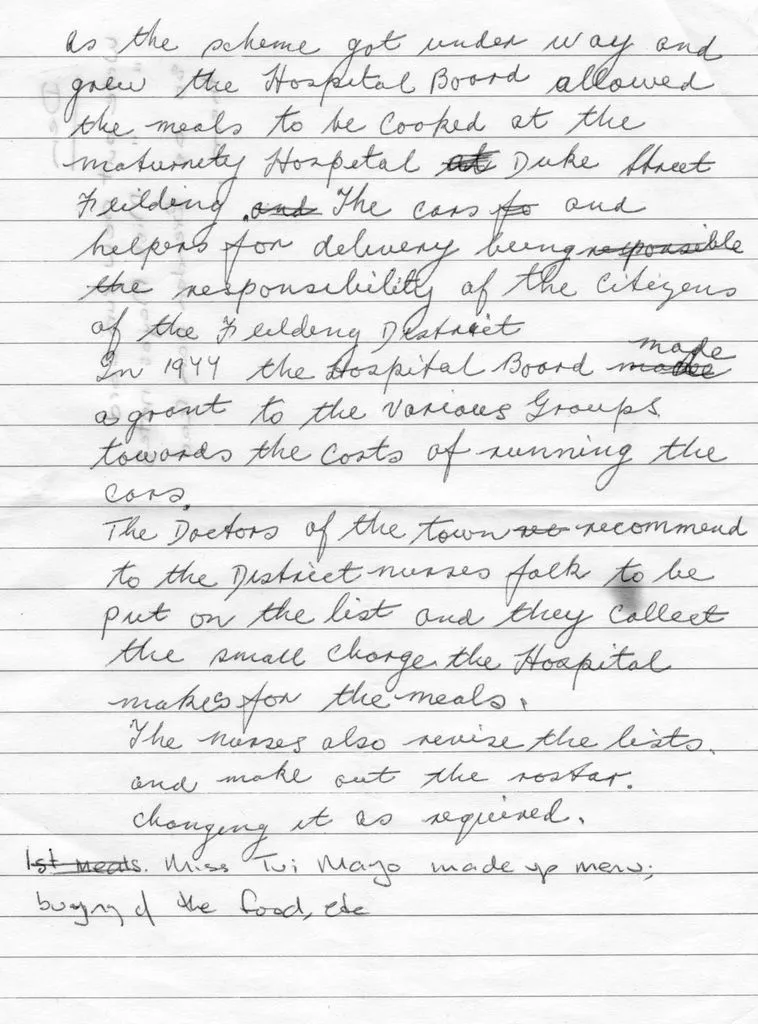 as the scheme got under way and
grew the Hospital Board allowed
the meals to be cooked at the
maturnity Hospital at Duke Street
Feilding. and The cars fo and
helpers for delivery being responsible
the responsibility of the Citizens
of the Feilding District
In 1944 the Hospital Board made made
a grant to the various Groups
towards the costs of running the
cars.
The Doctors of the town re recommend
to the District nurses folk to be
put on the list and they collect
the small charge the Hospital
makes for the meals.
The nurses also revise the lists.
and make out the rostar.
changing it as required.
1st meals. Miss Tui Mayo made up menu;
buying of the food, etc